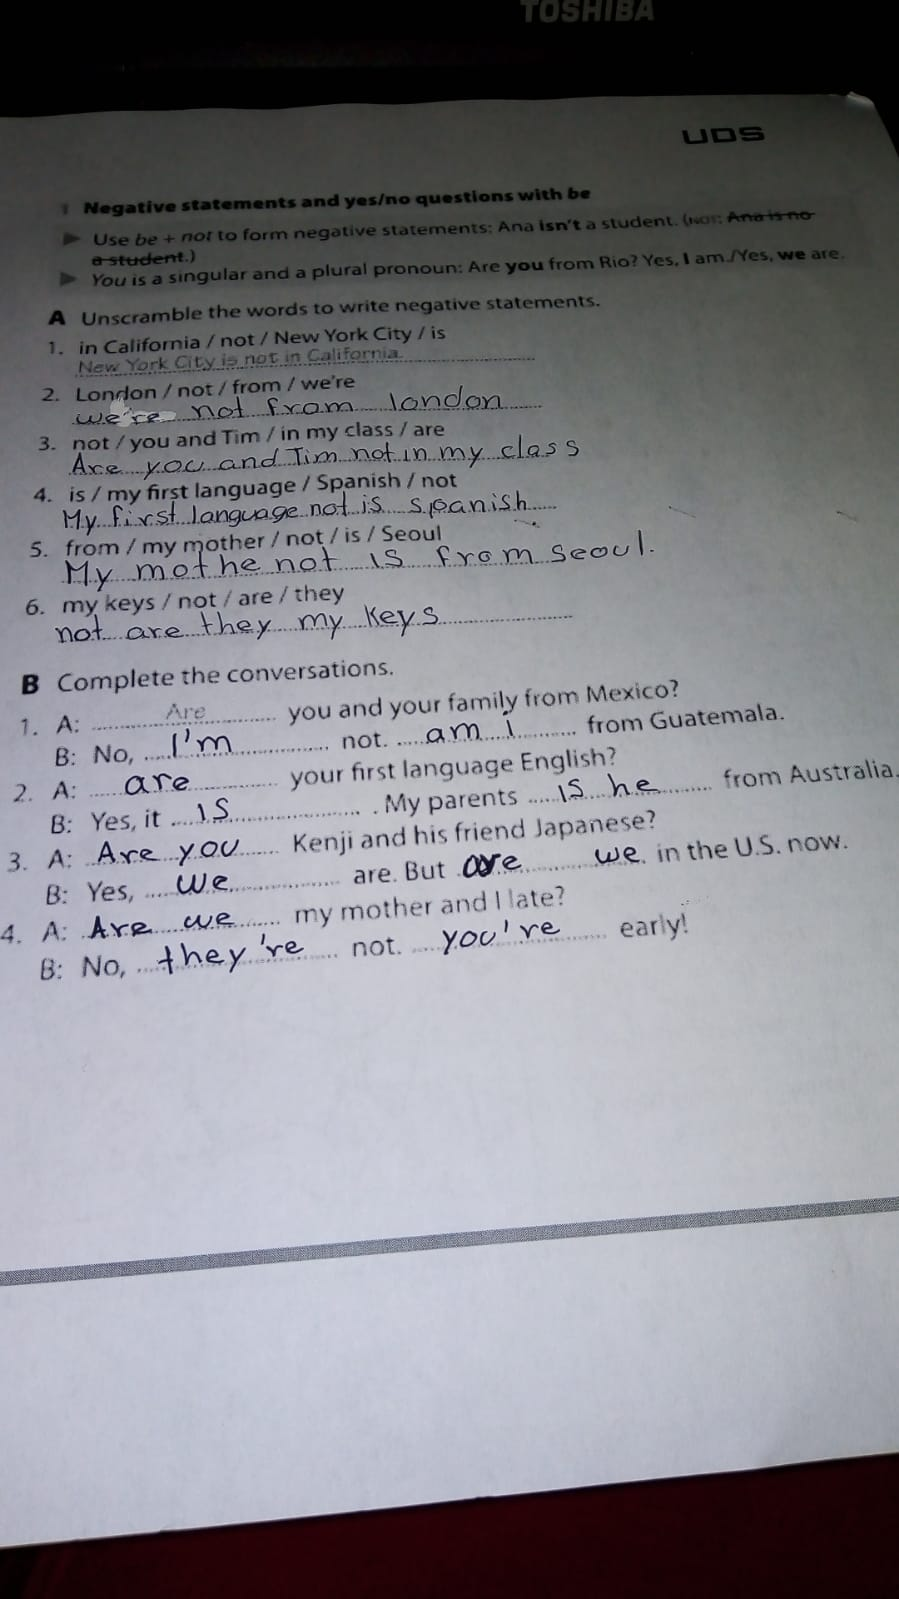 TOSHIBA
UDS
1 Negative statements and yes/no questions with be
▶ Use be + not to form negative statements: Ana isn't a student. (NOT: Ana is no
a student.)
▶ You is a singular and a plural pronoun: Are you from Rio? Yes, I am./Yes, we are.
A Unscramble the words to write negative statements.
1. in California / not / New York City / is
New York City is not in California.
2. London / not / from / we're
we're not from london
3. not / you and Tim / in my class / are
Are you and Tim not in my class
4. is / my first language / Spanish / not
My first language not is spanish
5. from / my mother / not / is / Seoul
My mothe not is from seoul.
6. my keys / not / are / they
not are they my keys
B Complete the conversations.
1. A: Are you and your family from Mexico?
B: No, I'm not. am i from Guatemala.
2. A: are your first language English?
B: Yes, it is. My parents is he from Australia.
3. A: Are you Kenji and his friend Japanese?
B: Yes, we are. But are we in the U.S. now.
4. A: Are we my mother and I late?
B: No, they're not. you're early!